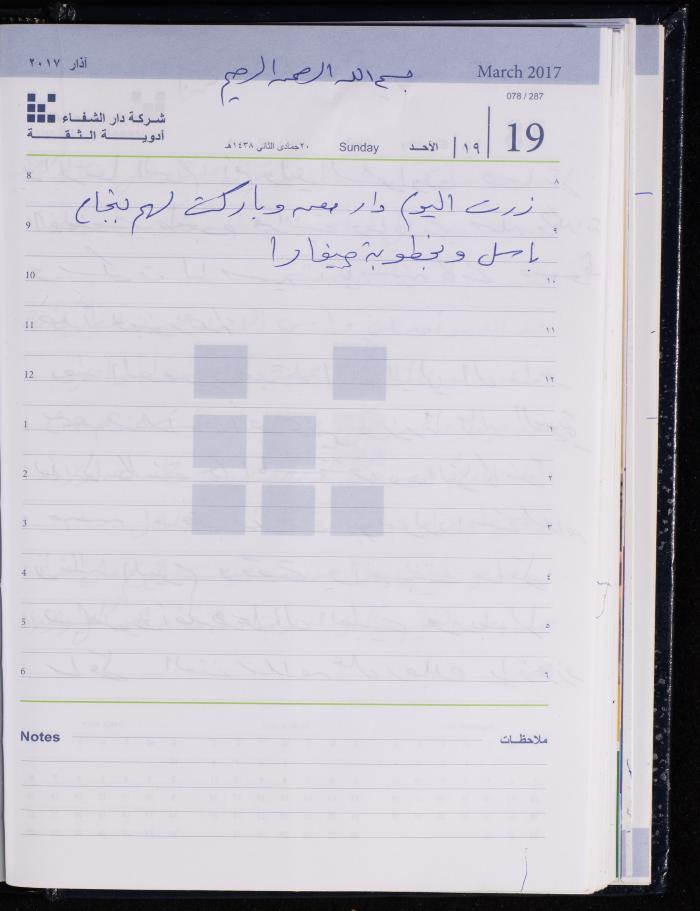 آذار ٢٠١٧
بسم الله الرحمن الرحيم
March 2017
078 / 287
شركة دار الشفاء
أدوية الثقة
٢٠ جمادى الثاني ١٤٣٨هـ
Sunday
الأحد
١٩
19
8 ٨
زرت اليوم دار معن وباركت لهم بنجاح
9 ٩
باسل وبخطوبة جيفارا
10 ١٠
11 ١١
12 ١٢
1 ١
2 ٢
3 ٣
4 ٤
5 ٥
6 ٦
Notes ملاحظات